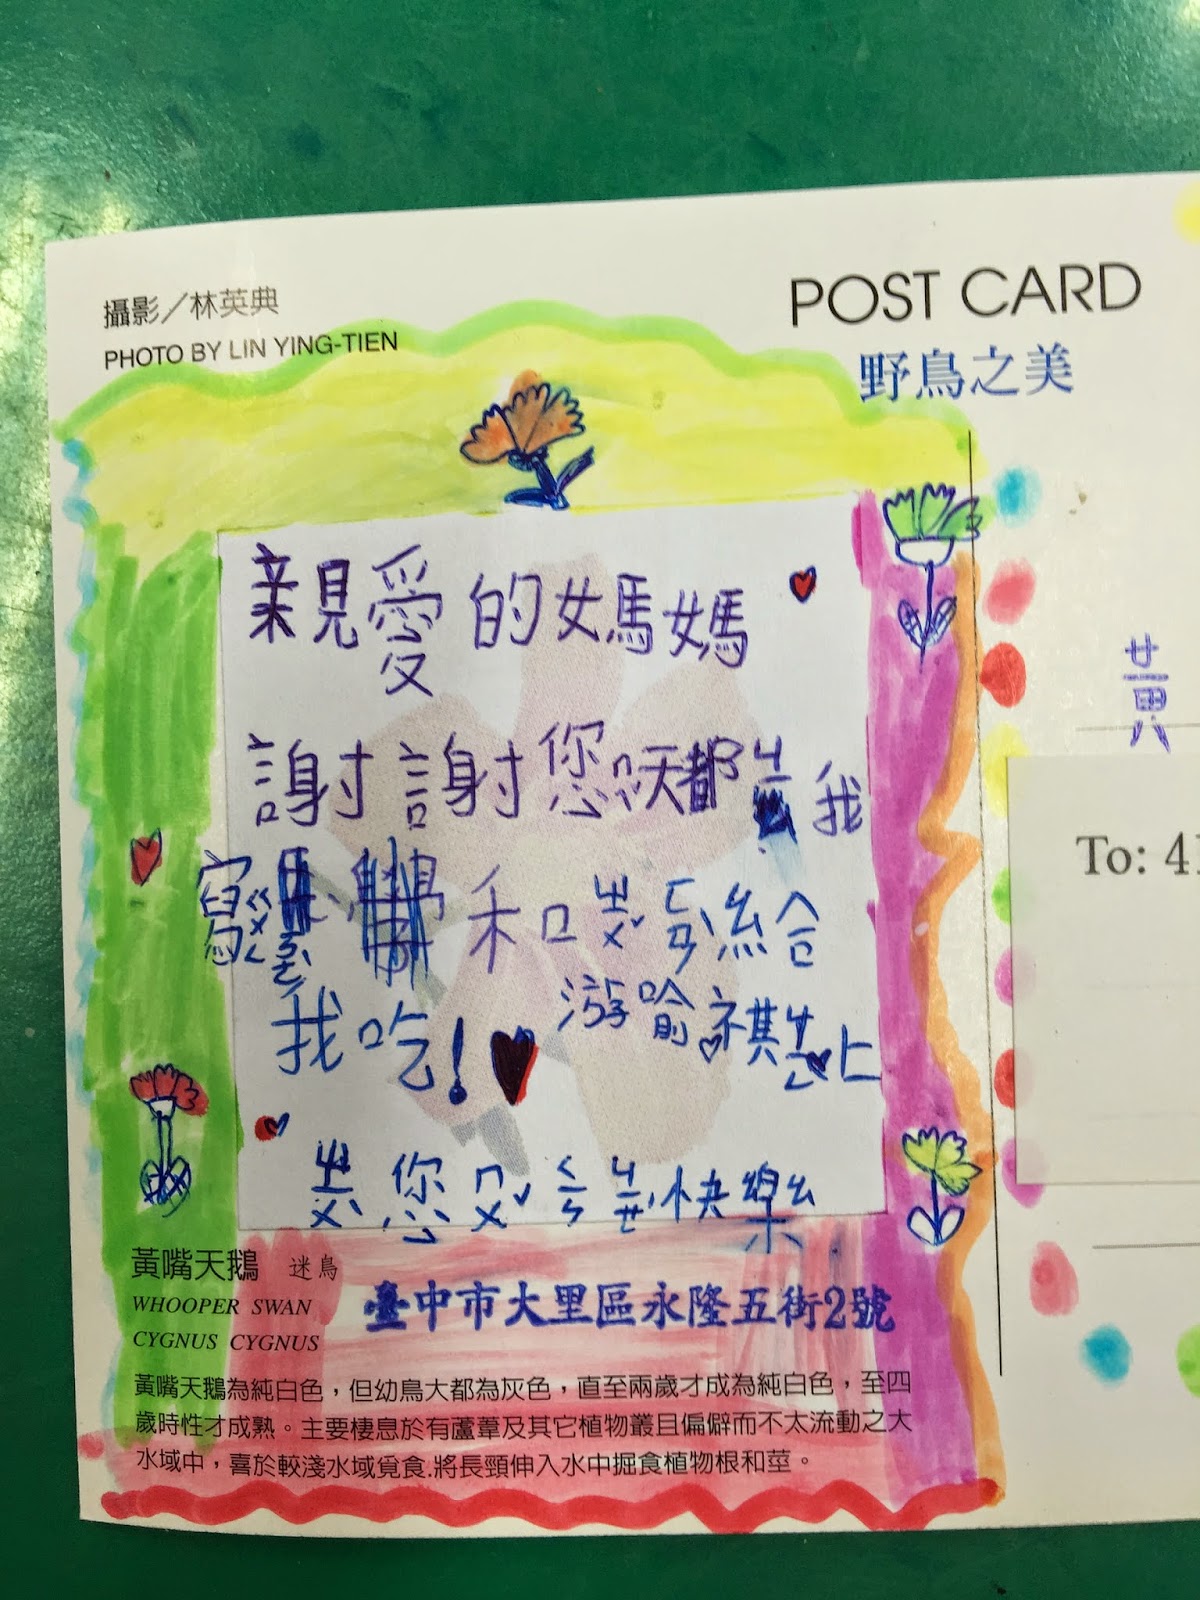 攝影／林英典
PHOTO BY LIN YING-TIEN
POST CARD
野鳥之美
親愛的媽媽
謝謝您天都ㄐㄧㄠ我
寫ㄍㄨㄥ和ㄓㄨˇ給
我吃！
游喻祺ㄐㄧㄥˋ上
ㄓㄨˋ您ㄇㄨˇㄑㄧㄣㄐㄧㄝˊ快樂
黃
To: 41
黃嘴天鵝 迷鳥
WHOOPER SWAN
CYGNUS CYGNUS
臺中市大里區永隆五街2號
黃嘴天鵝為純白色，但幼鳥大都為灰色，直至兩歲才成為純白色，至四
歲時性才成熟。主要棲息於有蘆葦及其它植物叢且偏僻而不太流動之大
水域中，喜於較淺水域覓食.將長頸伸入水中掘食植物根和莖。